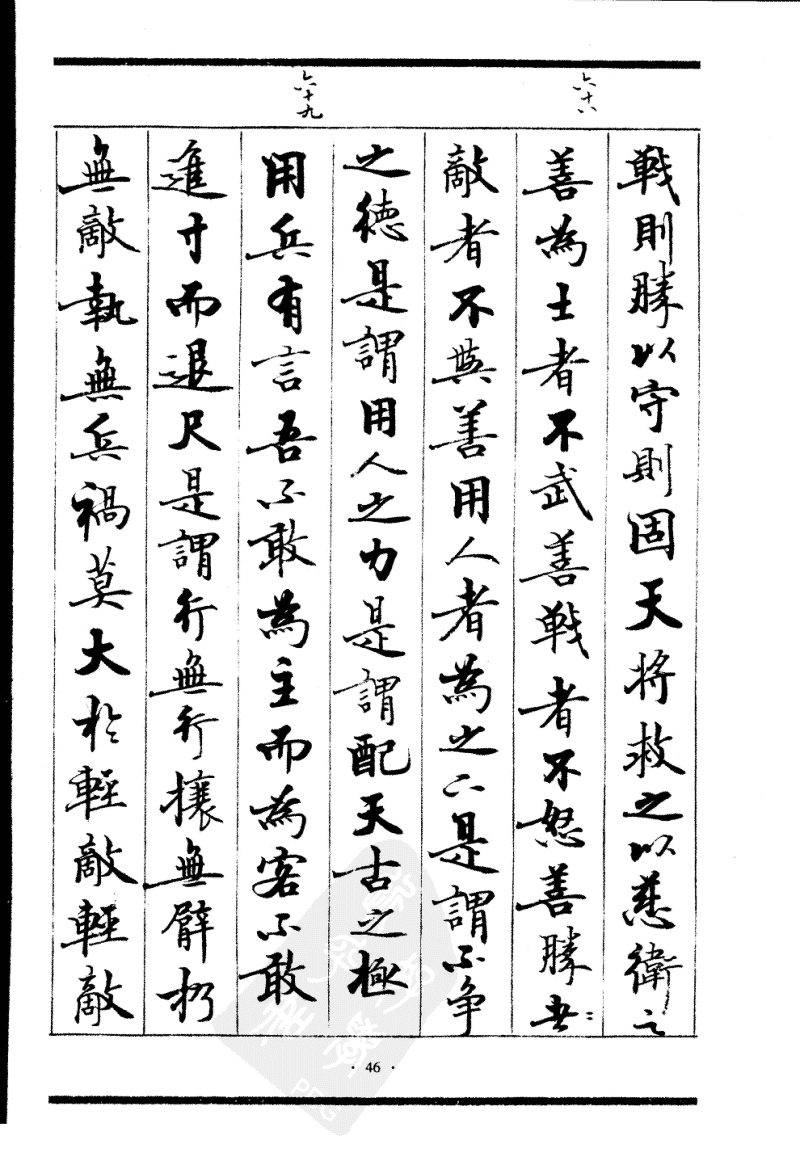 六十八
六十九
戰則勝以守則固天將救之以慈衛之
善為士者不武善戰者不怒善勝者
敵者不與善用人者為之下是謂不争
之德是謂用人之力是謂配天古之極
用兵有言吾不敢為主而為客不敢
進寸而退尺是謂行無行攘無臂扔
無敵執無兵禍莫大於輕敵輕敵
· 46 ·
PDG